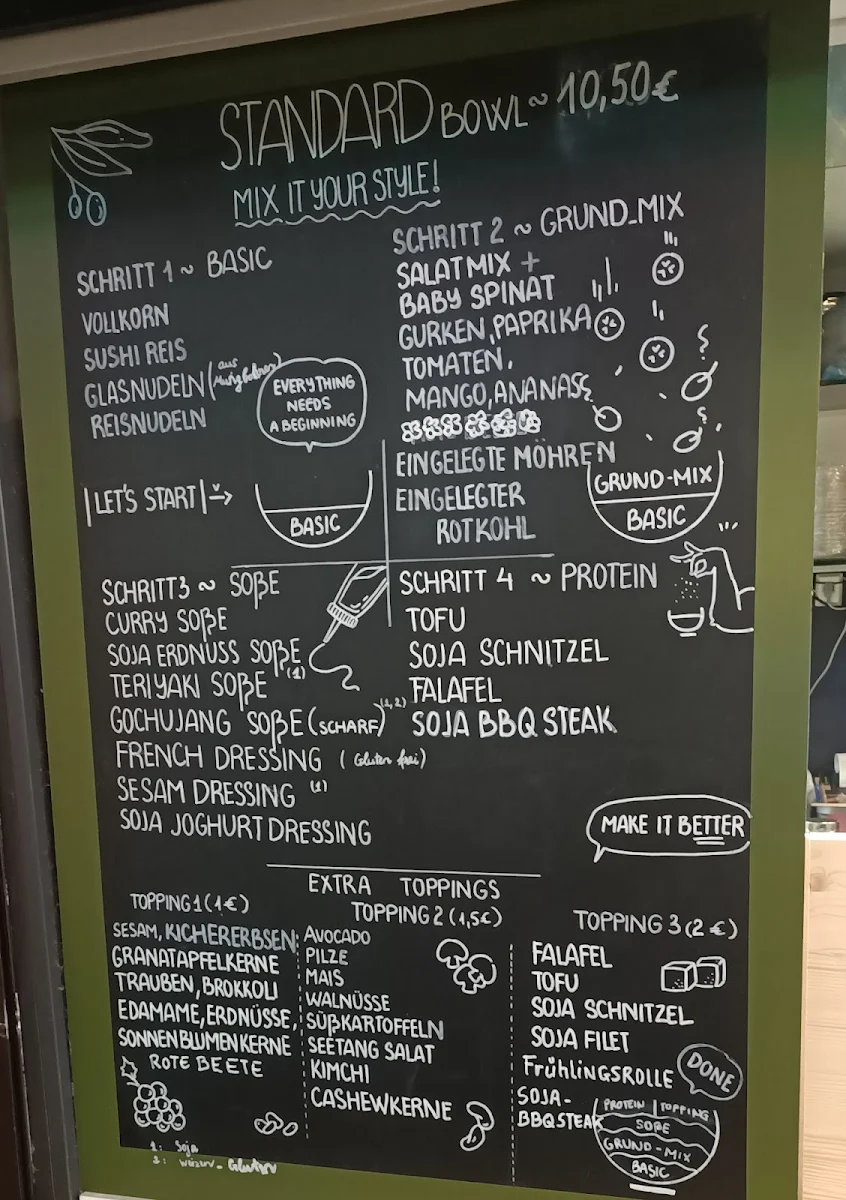 STANDARD BOWL ~ 10,50€
MIX IT YOUR STYLE!
SCHRITT 1 ~ BASIC
VOLLKORN
SUSHI REIS
GLASNUDELN (aus Mungbohnen)
REISNUDELN
EVERYTHING
NEEDS
A BEGINNING
|LET'S START| →
BASIC
SCHRITT 2 ~ GRUND_MIX
SALATMIX +
BABY SPINAT
GURKEN, PAPRIKA
TOMATEN,
MANGO, ANANAS
EINGELEGTE MÖHREN
EINGELEGTER
ROTKOHL
GRUND-MIX
BASIC
SCHRITT3 ~ SOßE
CURRY SOßE
SOJA ERDNUSS SOßE
TERIYAKI SOßE (1)
GOCHUJANG SOßE (SCHARF) (1,2)
FRENCH DRESSING (Gluten frei)
SESAM DRESSING (1)
SOJA JOGHURT DRESSING
SCHRITT 4 ~ PROTEIN
TOFU
SOJA SCHNITZEL
FALAFEL
SOJA BBQ STEAK
MAKE IT BETTER
EXTRA TOPPINGS
TOPPING 1 (1€)
SESAM, KICHERERBSEN,
GRANATAPFELKERNE
TRAUBEN, BROKKOLI
EDAMAME, ERDNÜSSE,
SONNENBLUMENKERNE
ROTE BEETE
TOPPING 2 (1,5€)
AVOCADO
PILZE
MAIS
WALNÜSSE
SÜßKARTOFFELN
SEETANG SALAT
KIMCHI
CASHEWKERNE
TOPPING 3 (2€)
FALAFEL
TOFU
SOJA SCHNITZEL
SOJA FILET
FrühlingsROLLE
SOJA-
BBQ STEAK
DONE
PROTEIN | TOPPING
SOßE
GRUND-MIX
BASIC
1: Soja
2: Weizen-Gluten